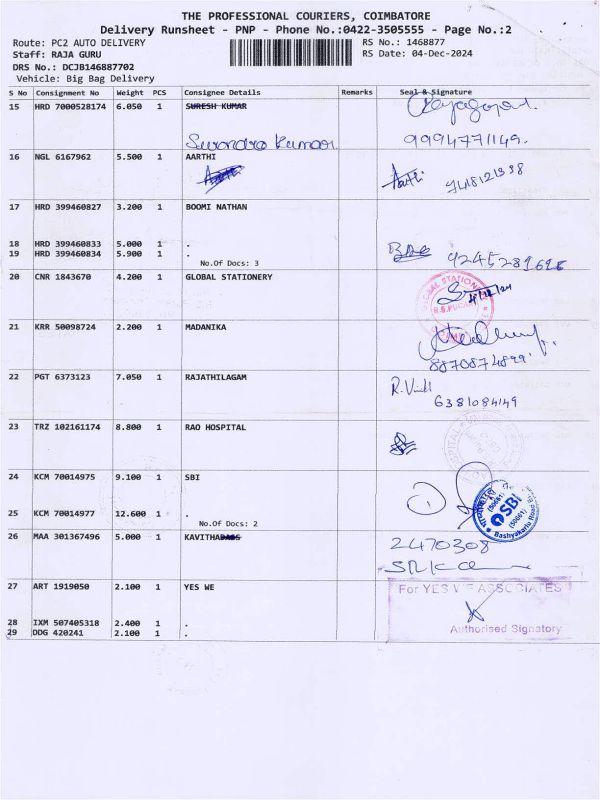 THE PROFESSIONAL COURIERS, COIMBATORE
Delivery Runsheet - PNP - Phone No.:0422-3505555 - Page No.:2
Route: PC2 AUTO DELIVERY
RS No.: 1468877
Staff: RAJA GURU
RS Date: 04-Dec-2024
DRS No.: DCJB146887702
Vehicle: Big Bag Delivery
S No Consignment No Weight PCS Consignee Details Remarks Seal & Signature
15 HRD 7000528174 6.050 1 SURESH KUMAR
Surendra Kumar 9994771149.
16 NGL 6167962 5.500 1 AARTHI
Aarthi
17 HRD 399460827 3.200 1 BOOMI NATHAN
18 HRD 399460833 5.000 1 .
19 HRD 399460834 5.900 1 .
No.Of Docs: 3
20 CNR 1843670 4.200 1 GLOBAL STATIONERY
GLOBAL STATION
R.S.PURAM
21 KRR 50098724 2.200 1 MADANIKA
8870874899
22 PGT 6373123 7.050 1 RAJATHILAGAM
6381084149
23 TRZ 102161174 8.800 1 RAO HOSPITAL
24 KCM 70014975 9.100 1 SBI
SBI
Bashyakarlu Road
25 KCM 70014977 12.600 1 .
No.Of Docs: 2
26 MAA 301367496 5.000 1 KAVITHA
2470308
27 ART 1919050 2.100 1 YES WE
For YES WE ASSOCIATES
28 IXM 507405318 2.400 1 .
29 DDG 420241 2.100 1 .
Authorised Signatory